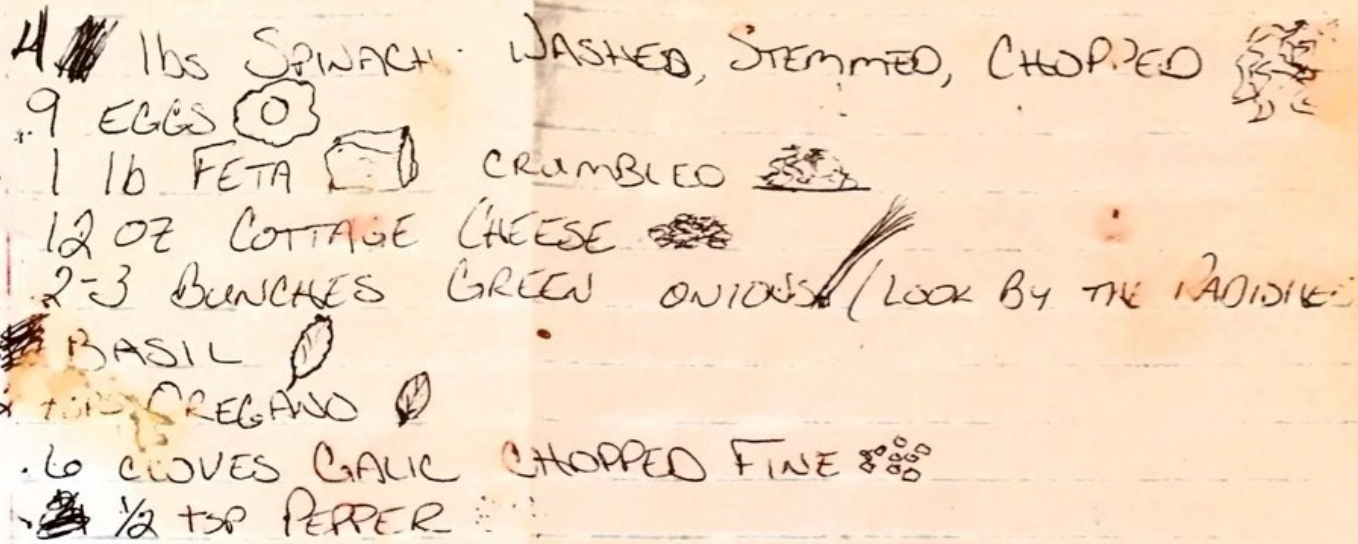 4 lbs SPINACH WASHED, STEMMED, CHOPPED
9 EGGS
1 lb FETA CRUMBLED
12 OZ COTTAGE CHEESE
2-3 BUNCHES GREEN ONIONS (LOOK BY THE
BASIL
OREGANO
6 CLOVES GALIC CHOPPED FINE
1/2 tsp PEPPER